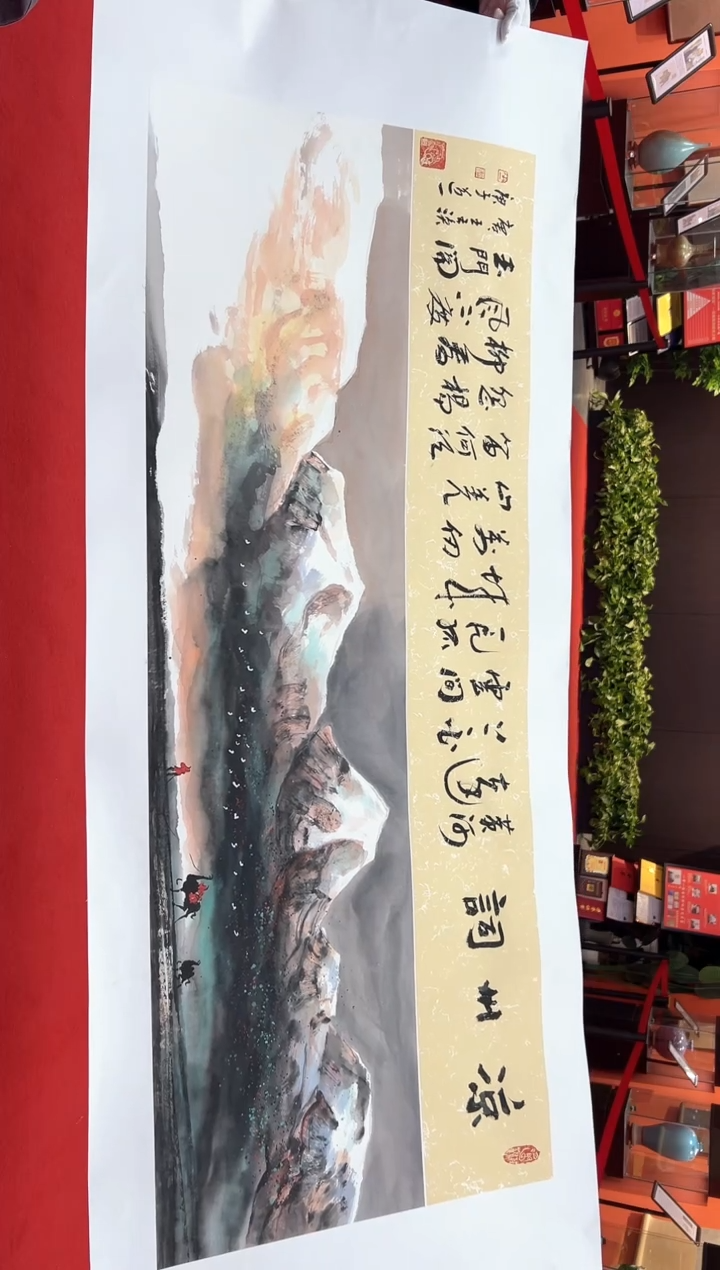 凉州詞
黄河
遠
上白
雲間
一片孤
城
萬仞
山羌
笛何須
怨楊
柳春
風不度
玉門關
唐王之渙
庚子